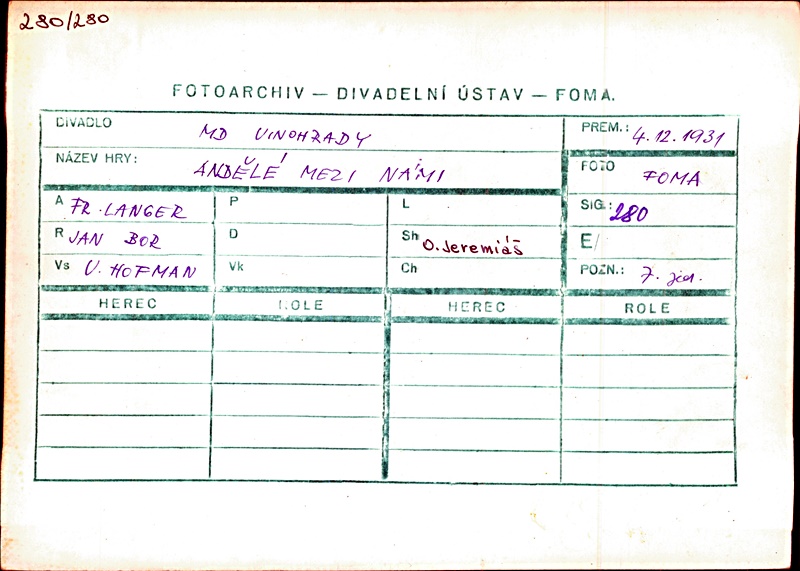 280/280
FOTOARCHIV — DIVADELNÍ ÚSTAV — FOMA.
DIVADLO MD VINOHRADY PREM.: 4.12.1931
NÁZEV HRY: ANDĚLÉ MEZI NÁMI FOTO FOMA
A FR. LANGER P L SIG.: 280
R JAN BOR D Sh O. Jeremiáš E/
Vs V. HOFMAN Vk Ch POZN.: 7. jed.
HEREC ROLE HEREC ROLE